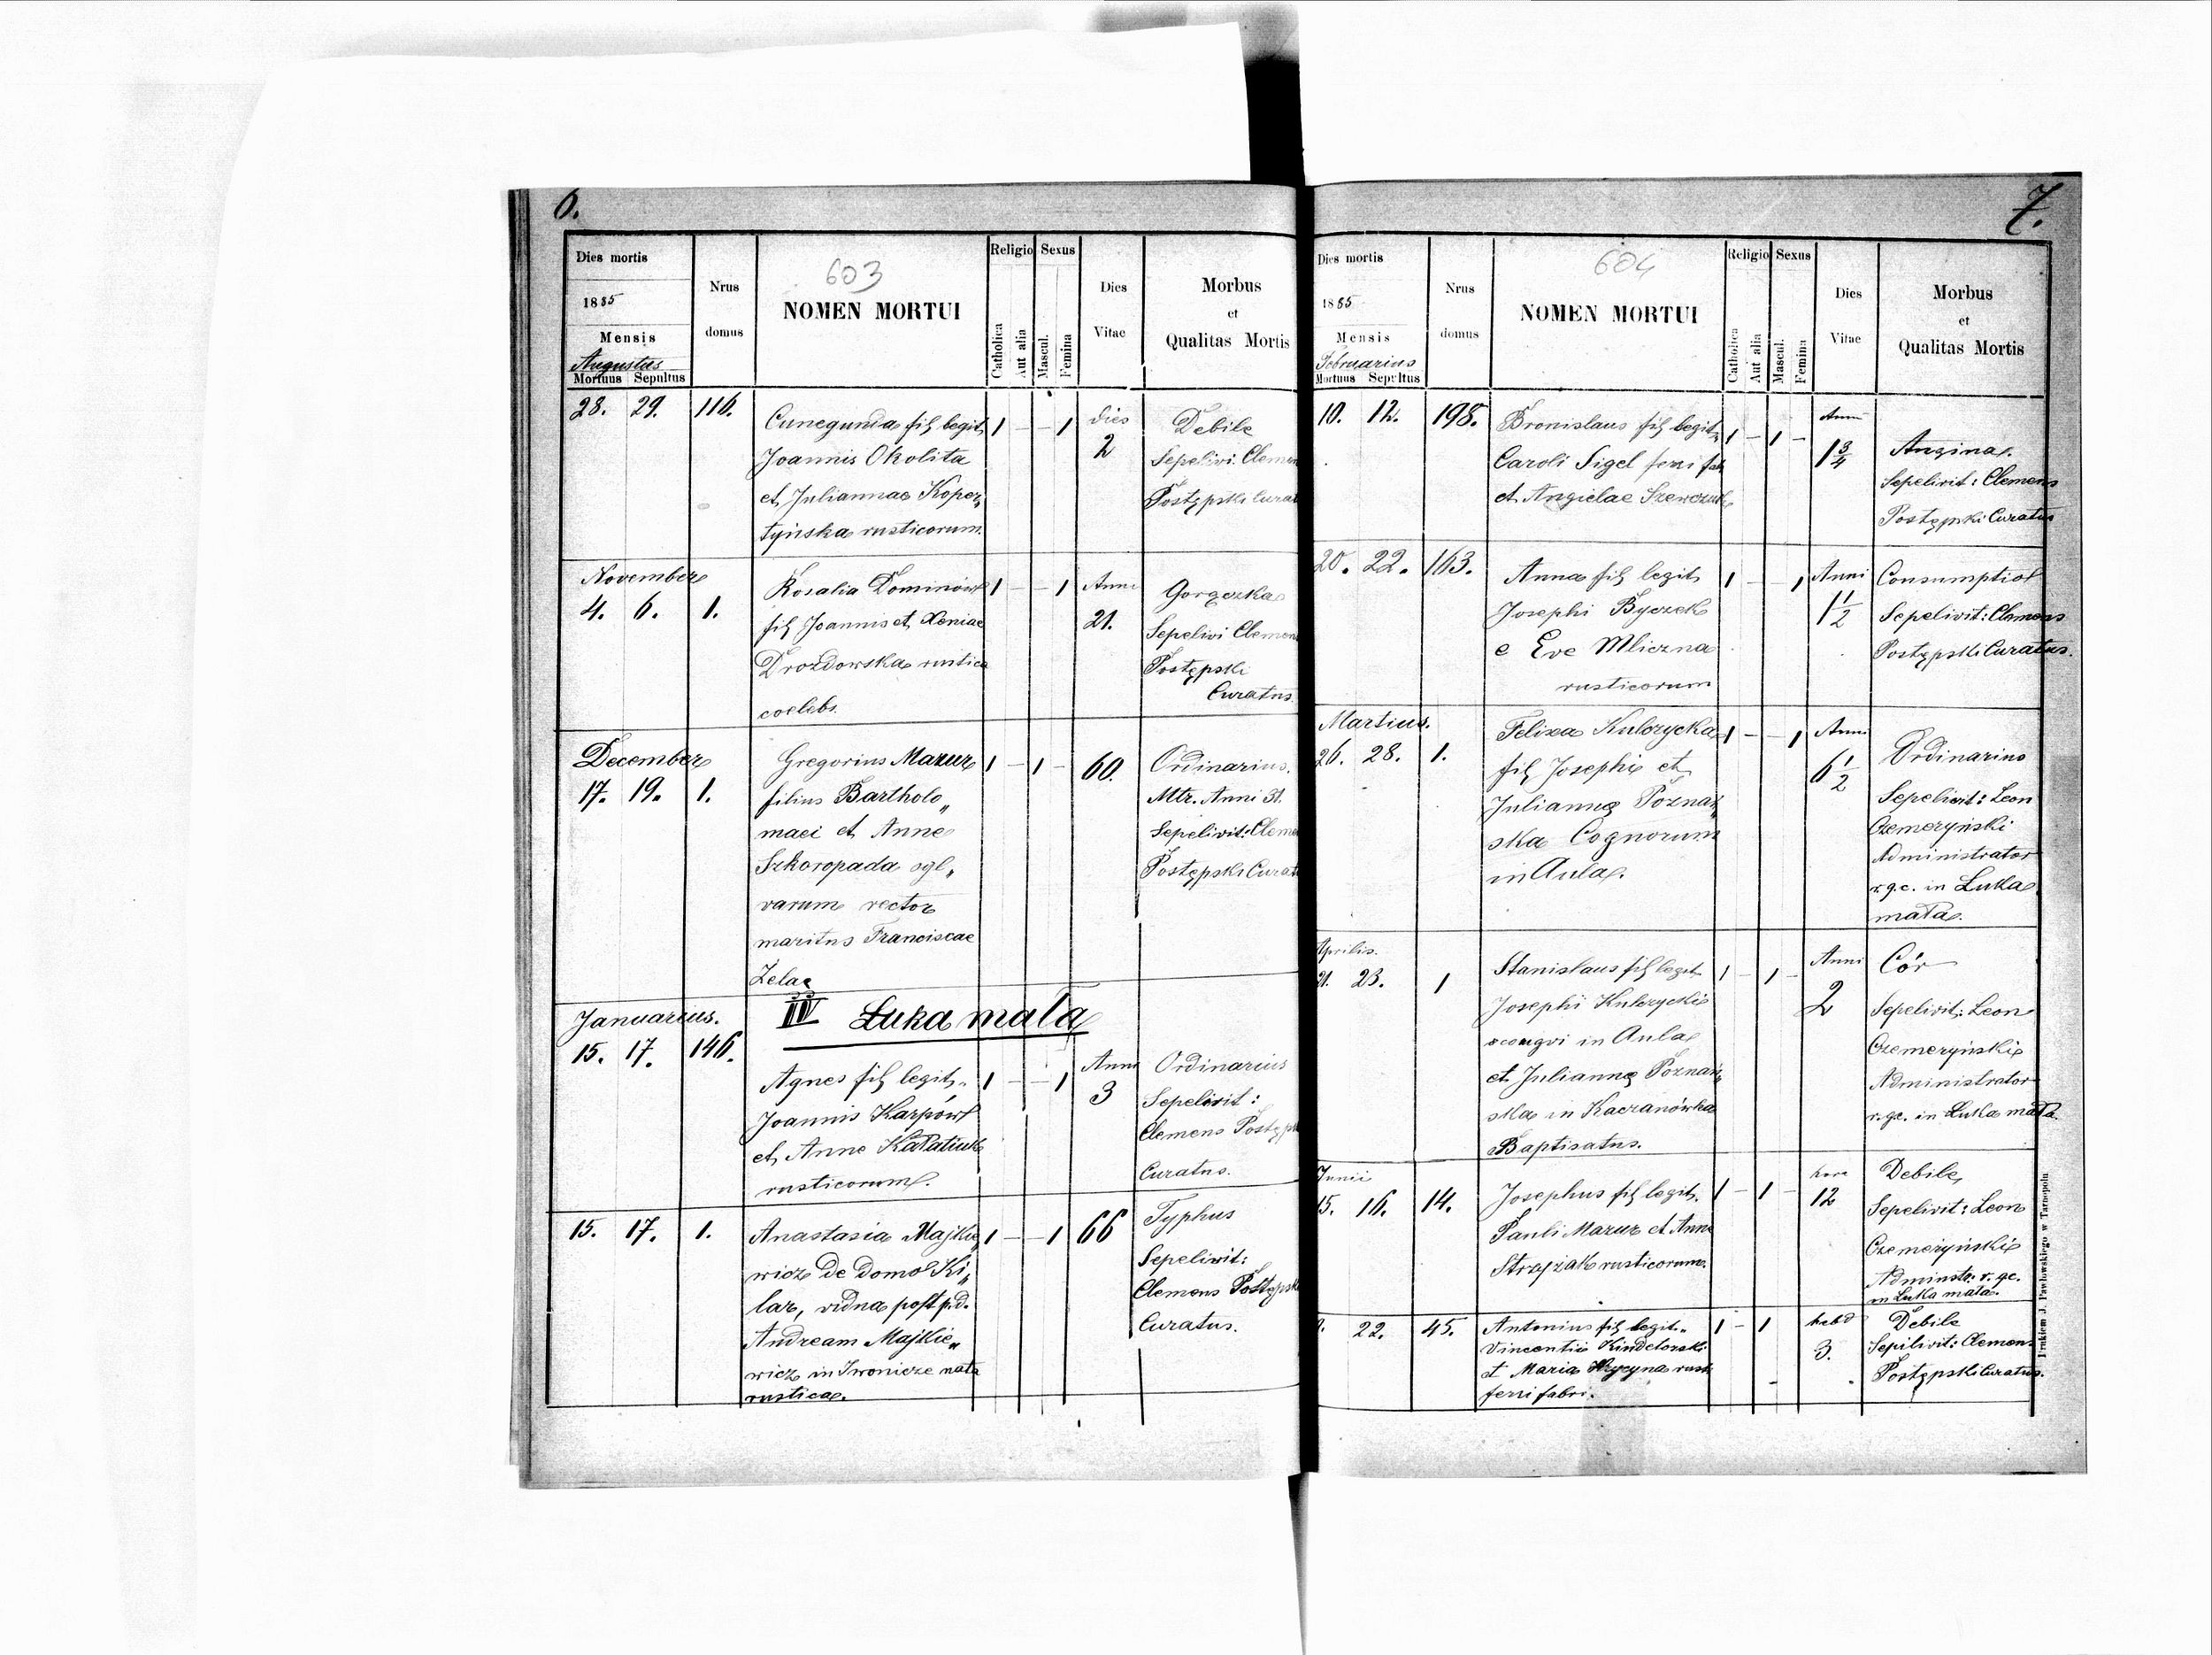 6.
Dies mortis
1885
Mensis
Augustus
Mortuus Sepultus
Nrus
domus
603
NOMEN MORTUI
Religio
Catholica
Aut alia
Sexus
Mascul.
Femina
Dies
Vitae
Morbus
et
Qualitas Mortis
28. 29. 116.
Cunegunda fil legit
Joannis Okolita
et Juliannae Koper„
tyńska rusticorum.
1 – – 1
dies
2
Debile
Sepelivi: Clemen
Postępski Curat
November
4. 6. 1.
Rosalia Dominów
fil Joannis et Xeniae
Drozdowska rustica
coelebs.
1 – – 1
Anni
21.
Gorączka
Sepelivi Clemen
Postępski
Curatus.
December
17. 19. 1.
Gregorius Mazur
filius Bartholo„
maei et Anne
Szkoropada sgl„
varum rector
maritus Franciscae
Zelag
1 – 1 –
60.
Ordinarius.
Mtr. Anni 31.
Sepelivit: Cleme
Postępski Curat
IV Łuka mała
Januarius.
15. 17. 146.
Agnes fil legit.
Joannis Karpów
et Anne Kałatiuk
rusticorum.
1 – – 1
Anni
3
Ordinarius
Sepelivit:
Clemens Postęp
Curatus.
15. 17. 1.
Anastasia Majkie„
wicz de domo Ki„
lar, vidua post p.d.
Andream Majkie„
wicz in Iwonicze nata
rustica.
1 – – 1
66
Typhus
Sepelivit:
Clemens Postępsk
Curatus.
7.
Dies mortis
1885
Mensis
Februarius
Mortuus Sepultus
Nrus
domus
604
NOMEN MORTUI
Religio
Catholica
Aut alia
Sexus
Mascul.
Femina
Dies
Vitae
Morbus
et
Qualitas Mortis
10. 12. 198.
Bronislaus fil legit
Caroli Sigel ferri fab
et Angielae Szewczuk
1 – 1 –
Anni
1 3/4
Angina.
Sepelivit: Clemens
Postępski Curatus
20. 22. 163.
Anna fil legit
Josephi Byczek
e Eve Mliczna
rusticorum
1 – 1
Anni
1 1/2
Consumptio
Sepelivit: Clemens
Postępski Curatus.
Martius.
26. 28. 1.
Felixa Kulczycka
fil Josephi et
Julianne Poznań„
ska Cognorum
in Aula.
1 – – 1
Anni
6 1/2
Ordinario
Sepelivit: Leon
Czemeryński
Administrator
r.g.c. in Łuka
mała.
Aprilis.
21. 23. 1
Stanislaus fil legit
Josephi Kulczycki
cogni in Aula
et Julianne Poznań„
ska in Kaczanówka
Baptisatus.
1 – 1 –
Anni
2
Cór
Sepelivit: Leon
Czemeryński
Administrator
r.gc. in Łuka mała
Junii
15. 16. 14.
Josephus fil legit.
Pauli Mazur et Anne
Strojzak rusticorum.
1 – 1 –
hora
12
Debile
Sepelivit: Leon
Czemeryński
Adminstr. r. gc.
in Łuka mała.
22. 45.
Antonius fil legit.
Vincentii Kindelorski
et Maria Hrycyna rusti
ferri fabri.
1 – 1
hebd
3.
Debile
Sepilivit: Clemens
Postępski Curatus.
Drukiem J. Pawłowskiego w Tarnopolu